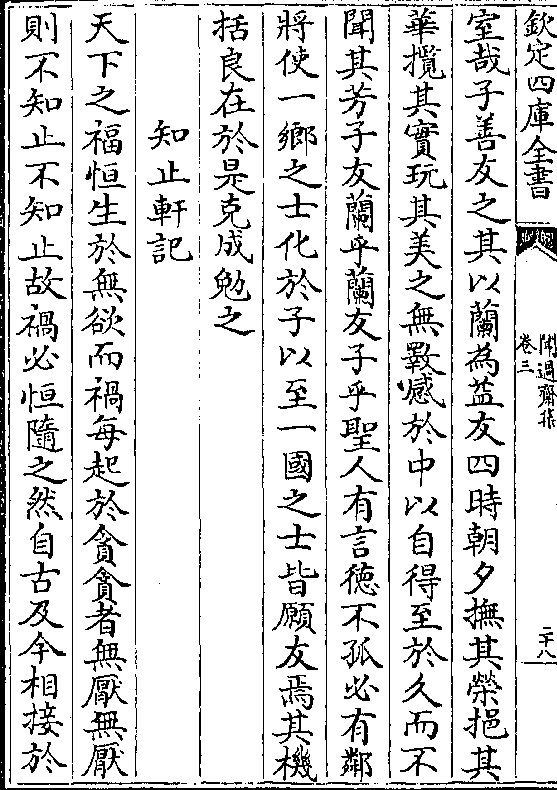 欽定四庫全書
聞過齋集
卷三
二十八
室哉子善友之其以蘭為益友四時朝夕撫其榮挹其
華攬其實玩其美之無斁感於中以自得至於久而不
聞其芳子友蘭乎蘭友子乎聖人有言德不孤必有鄰
將使一鄉之士化於子以至一國之士皆願友焉其機
括良在於是克成勉之
知止軒記
天下之福恒生於無欲而禍每起於貪貪者無厭無厭
則不知止不知止故禍必恒隨之然自古及今相接於